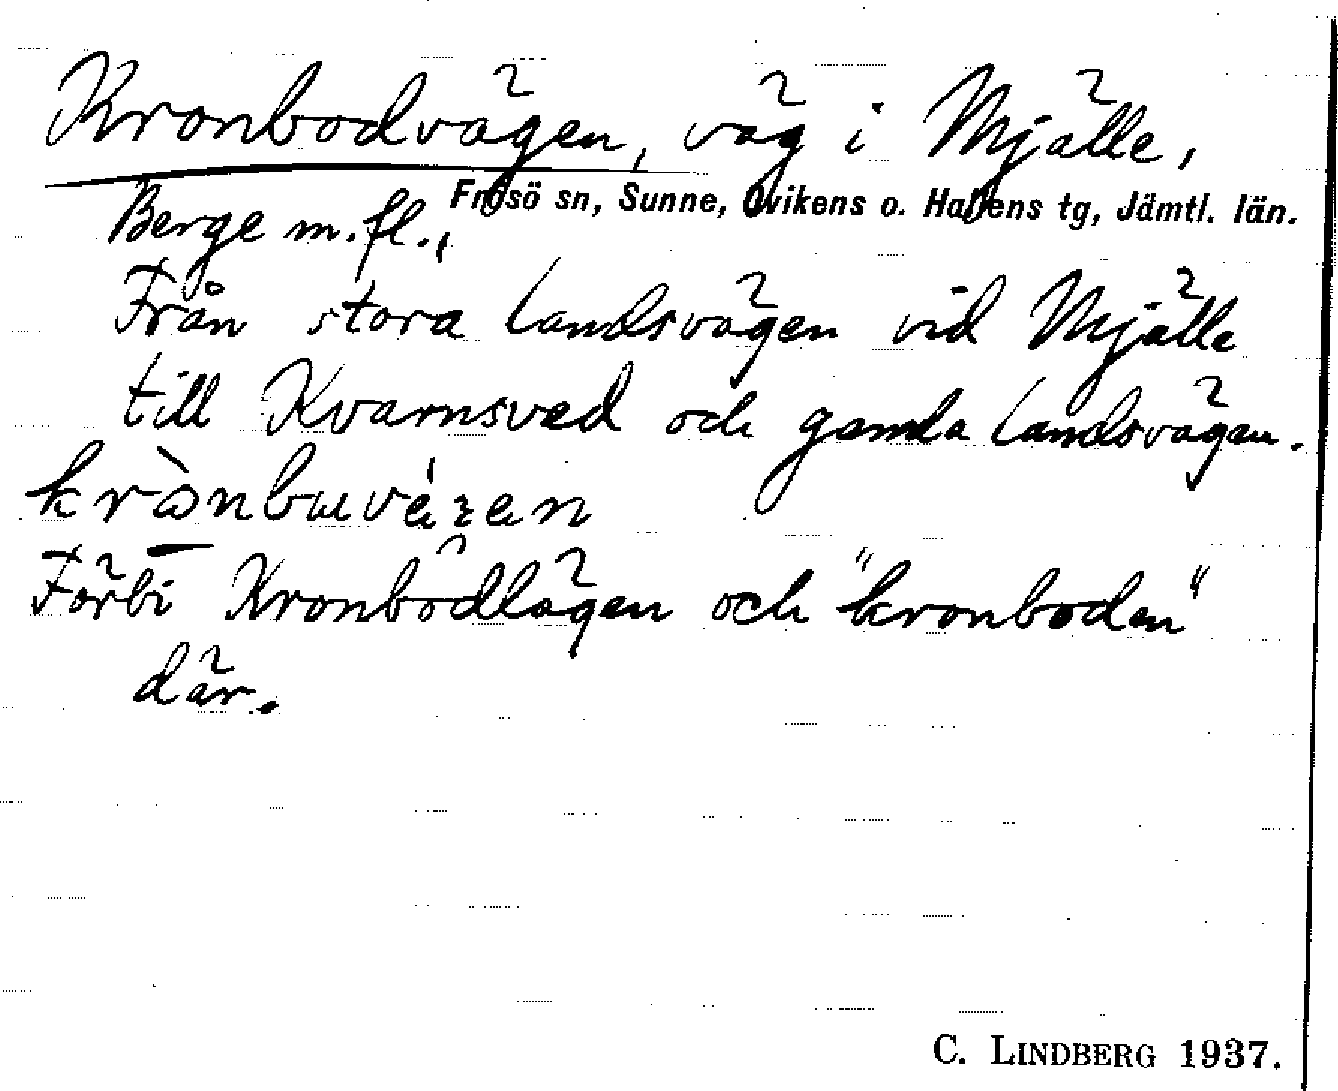 Kronbodvägen, väg i Mjälle,
Frösö sn, Sunne, Ovikens o. Hallens tg, Jämtl. län.
Berge m. fl.,
Från stora landsvägen vid Mjälle
till Kvarnsved och gamla landsvägen.
Förbi Kronbodlägen och "kronboden"
där.
C. LINDBERG 1937.